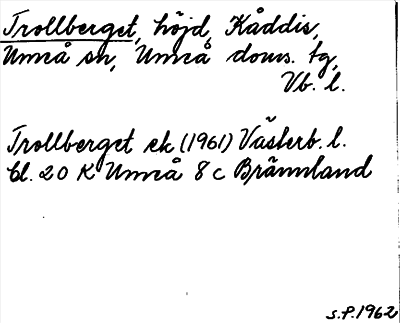 Trollberget, höjd, Kåddis,
Umeå sn, Umeå doms. tg,
Vb. l.
Trollberget ek (1961) Västerb. l.
bl. 20 K Umeå 8 c Brännland
S.P. 1962